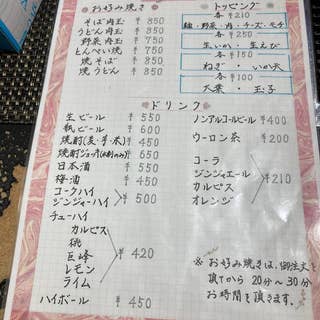 お好み焼き
そば肉玉 ¥850
うどん肉玉 ¥850
野菜肉玉 ¥750
とんぺい焼 ¥750
焼そば ¥850
焼うどん ¥850
トッピング
各¥210
麺・野菜・肉・チーズ・モチ
各¥250
生いか・生えび
各¥150
ねぎ・いか天
各¥100
大葉・玉子
ドリンク
生ビール ¥550
瓶ビール ¥600
焼酎(麦・芋・米) ¥450
焼酎ジョッキ(水割のみ) ¥650
日本酒 ¥550
梅酒 ¥450
コークハイ
ジンジャーハイ ¥500
チューハイ
カルピス
桃
巨峰 ¥420
レモン
ライム
ハイボール ¥450
ノンアルコールビール ¥400
ウーロン茶 ¥200
コーラ
ジンジャエール
カルピス ¥210
オレンジ
※お好み焼きは、御注文を
頂いてから20分〜30分
お時間を頂きます。